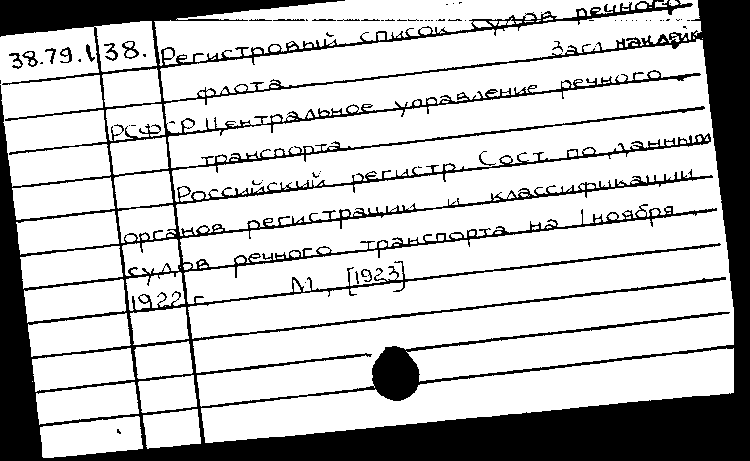 38.79.1 38. Регистровый список судов речного
флота. Загл. наклейк
РСФСР. Центральное управление речного
транспорта.
Российский регистр. Сост. по данным
органов регистрации и классификации
судов речного транспорта на 1 ноября
1922 г. М., [1923]